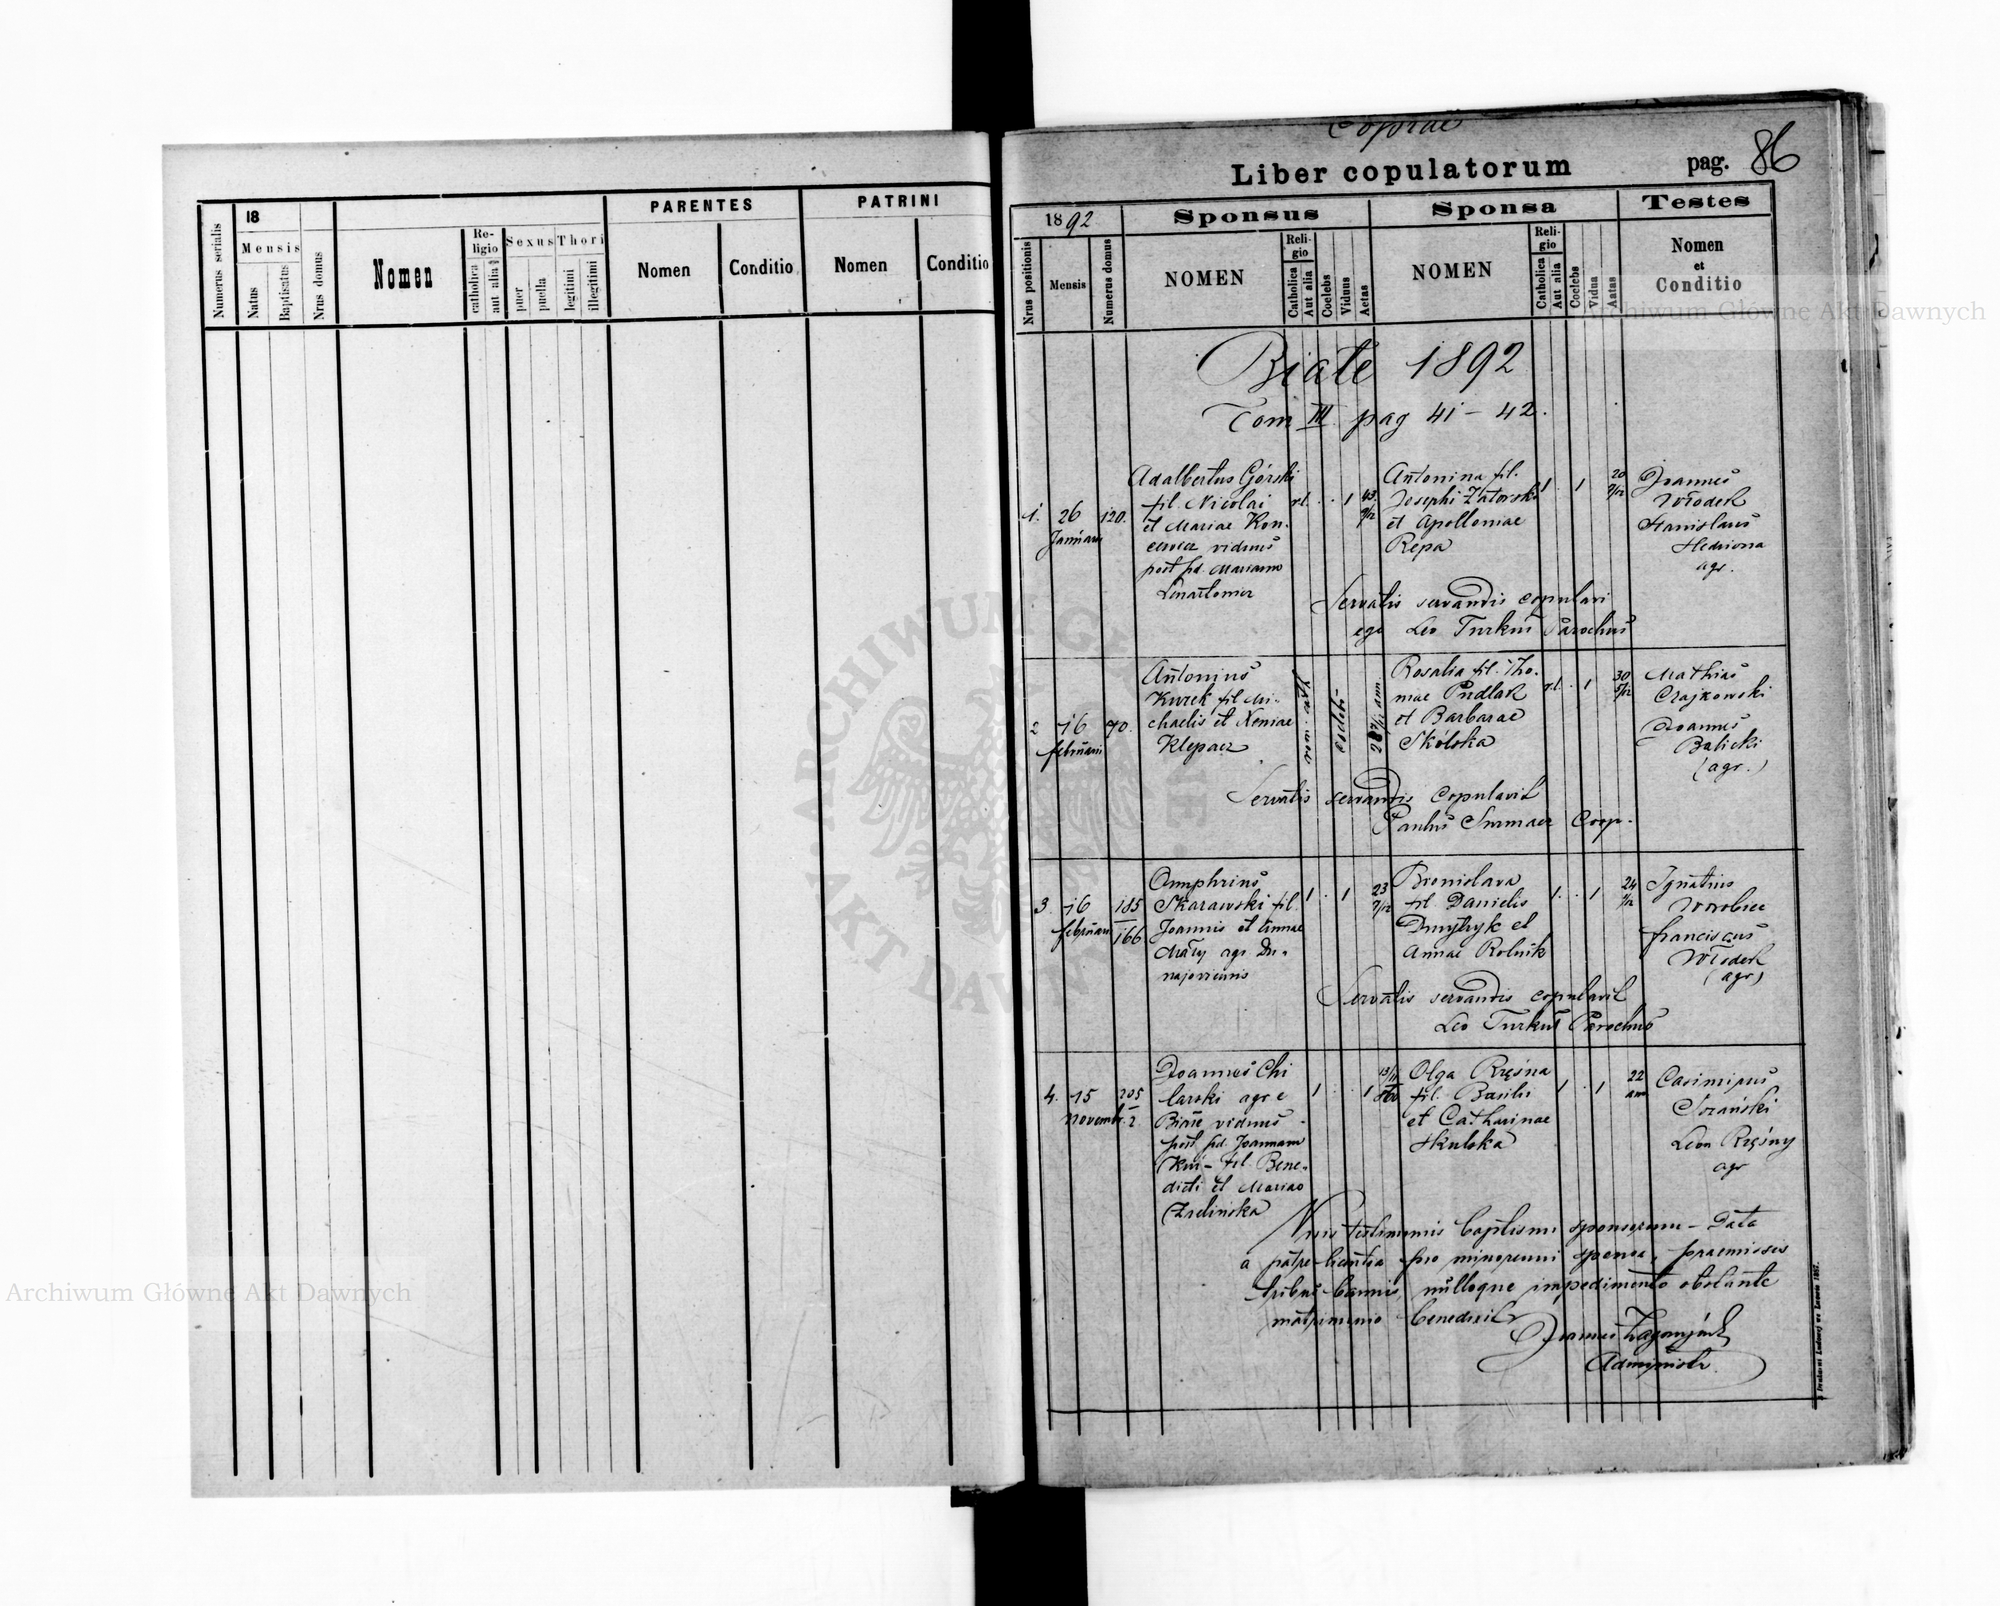 PARENTES
PATRINI
Numerus serialis
18
Mensis
Natus
Baptisatus
Nrus domus
Nomen
Re-
ligio
catholica
aut alia
Sexus
puer
puella
Thori
legitimi
illegitimi
Nomen
Conditio
Nomen
Conditio
Copiae
Liber copulatorum
pag. 86
1892
Sponsus
Sponsa
Testes
Nrus positionis
Mensis
Numerus domus
NOMEN
Reli-
gio
Catholica
Aut alia
Coelebs
Viduus
Aetas
NOMEN
Reli-
gio
Catholica
Aut alia
Coelebs
Vidua
Aatas
Nomen
et
Conditio
Białe 1892
Tom III pag 41 - 42.
1. 26 Januarii 120.
Adalbertus Górski
fil. Nicolai
et Mariae Kon-
cewicz viduus
post pd. Mariam
r.l. 1
Antonina fil.
Josephi Zatorski
et Apolloniae
Repa
1 1 20
Joannes
Włodek
Stanislaus
agr.
Servatis servandis copulavi
ego Leo Turkus Parochus
2 16 februarii 70.
Antonius
Kurek fil. Mi-
chaelis et Xeniae
Klepacz
rom. cath
coelebs
Rosalia fil. Tho-
mae Pudlak
et Barbarae
Skólska
r.l. 1 30
Mathias
Czajkowski
Joannes
Balicki
(agr.)
Servatis servandis copulavit
Paulus Surmacz Coop.
3. 16 februarii 185
166
Onuphrius
Skarawski fil.
Joannis et Annae
agr Du-
najoviensis
1 1 23 7/12
Bronislava
fil. Danielis
Dmytryk et
Annae Rolnik
1. 1 24
Ignatius
Wrobiec
franciscus
Włodek
(agr)
Servatis servandis copulavit
Leo Turkus Parochus
4. 15 novembr. 205
2
Joannes Chi
larski agr e
Białe viduus
post pd. Joannam
fil. Bene-
dicti et Mariae
Zielinska
1 1
Olga Rręsna
fil. Basilii
et Catharinae
Skulska
1 1 22
ann
Casimirus
Sozański
Leon Rręsny
agr
Visis testimoniis baptismi sponsorum - Data
a patre licentia pro minorenni sponsa, praemissis
tribus bannis, nulloque impedimento obstante
matrimonio benedixit
Joannes
Administr.
Archiwum Główne Akt Dawnych
ARCHIWUM GŁÓWNE • AKT DAWNYCH •
Archiwum Główne Akt Dawnych